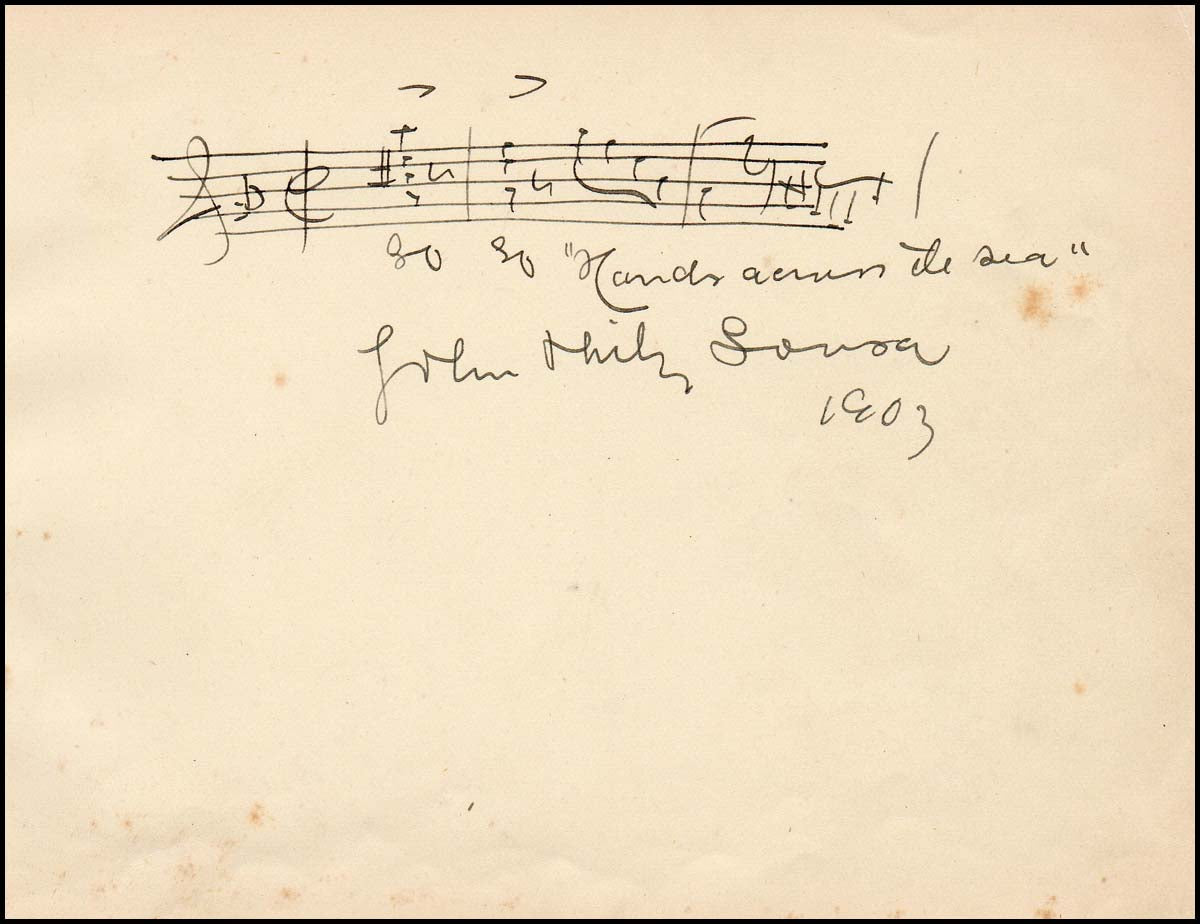 "Hands across the sea"
John Philip Sousa
1903